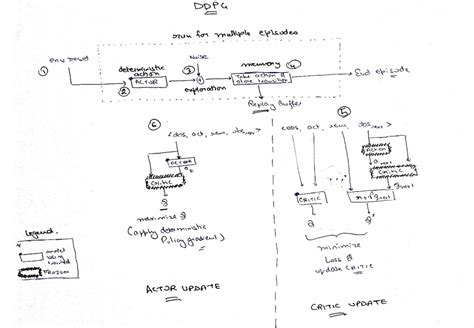 DDPG
run for multiple episodes
① env reset
deterministic action
② ACTOR
③ Noise
+
exploration
memory ④
Take action & store transition
End episode
Replay Buffer
⑥
<obs, act, rew, obsnext>
ACTOR
Critic
Q
maximize Q
(apply deterministic
Policy gradient)
ACTOR UPDATE
⑤
<obs, act, rew, obsnext>
Actor
anext
Critic
Qnext
CRITIC
Q
Q'
minimize
Loss &
update CRITIC
CRITIC UPDATE
Legend:
model
being
trained
FROZEN